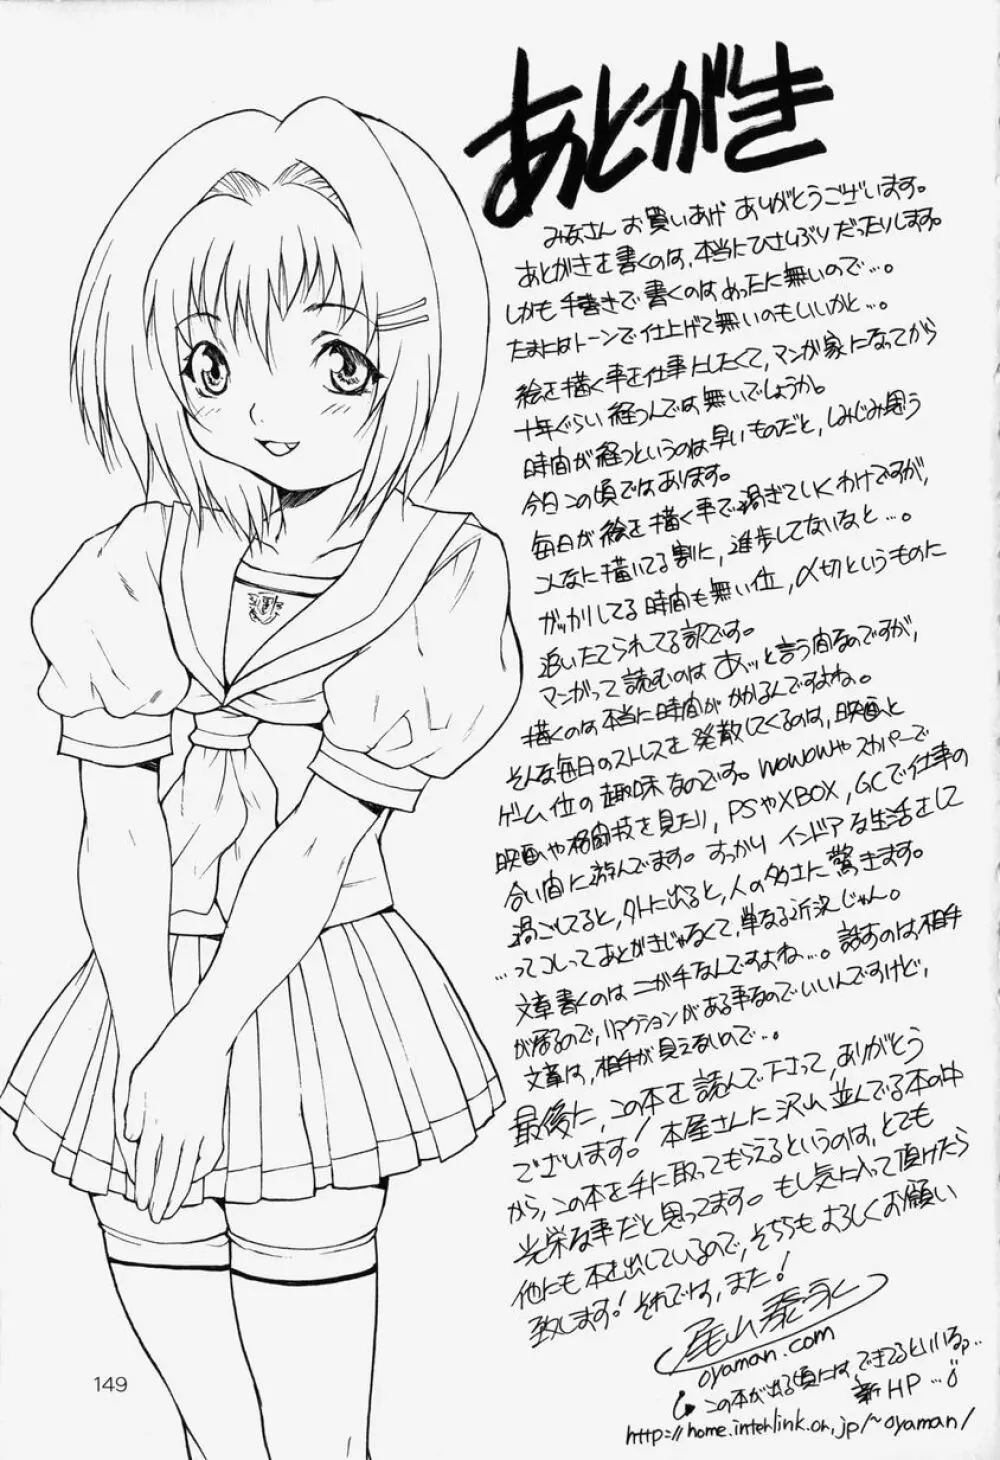 あとがき
みなさんお買いあげありがとうございます。
あとがきを書くのは、本当にひさしぶりだったりします。
しかも手書きで書くのはあったに無いので…。
たまにはトーンで仕上げて無いのもいいかと…。
絵を描く事を仕事にしたくて、マンガ家になってから
十年ぐらい経つんでは無いでしょうか。
時間が経つというのは早いものだと、しみじみ思う
今日この頃ではあります。
毎日が絵を描く事で過ぎていくわけですが、
こんなに描いてる割に、進歩してないなと…。
ガッカリしてる時間も無い位、〆切というものに
追いたてられてる訳です。
マンガって読むのはあッと言う間なのですが、
描くのは本当に時間がかかるんですよね。
そんな毎日のストレスを発散してくるのは、映画と
ゲーム位の趣味なのです。WOWOWやスカパーで
映画や格闘技を見たり、PSやXBOX、GCで仕事の
合い間に遊んでます。すっかりインドアな生活をして
過ごしてると、外に出ると、人の多さに驚きます。
…ってコレってあとがきじゃなくて、単なる近況じゃん。
文章書くのはニが手なんですよね…。話すのは、相手
が居るので、リアクションがある事なのでいいんですけど、
文章は、相手が見えないので…。
最後に、この本を読んで下さって、ありがとう
ございます!本屋さんに沢山並んでる本の中
から、この本を手に取ってもらえるというのは、とても
光栄な事だと思ってます。もし気に入って頂けたら
他にも本を出しているので、そちらもよろしくお願い
致します!それでは、また!
尾山泰永
oyaman.com
この本が出る頃にはできてるといいなァ…
新HP…
http://home.interlink.or.jp/~oyaman/
149